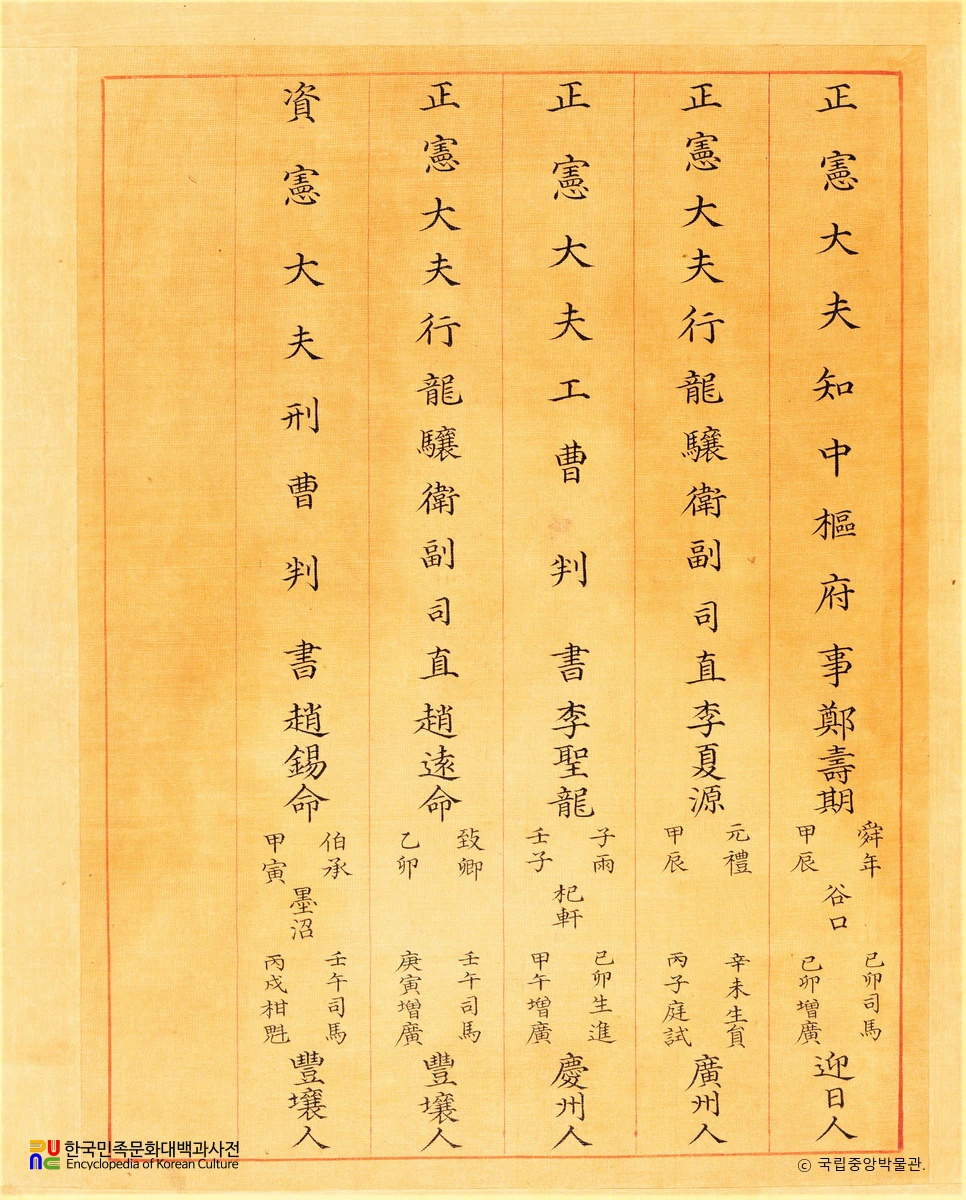 正憲大夫知中樞府事鄭壽期
舜年
甲辰
谷口
己卯司馬
己卯增廣
迎日人
正憲大夫行龍驤衛副司直李夏源
元禮
甲辰
辛未生員
丙子庭試
廣州人
正憲大夫工曹判書李聖龍
子雨
壬子
杞軒
己卯生進
甲午增廣
慶州人
正憲大夫行龍驤衛副司直趙遠命
致卿
乙卯
壬午司馬
庚寅增廣
豐壤人
資憲大夫刑曹判書趙錫命
伯承
甲寅
墨沼
壬午司馬
丙戌柑魁
豐壤人
한국민족문화대백과사전
Encyclopedia of Korean Culture
ⓒ 국립중앙박물관.